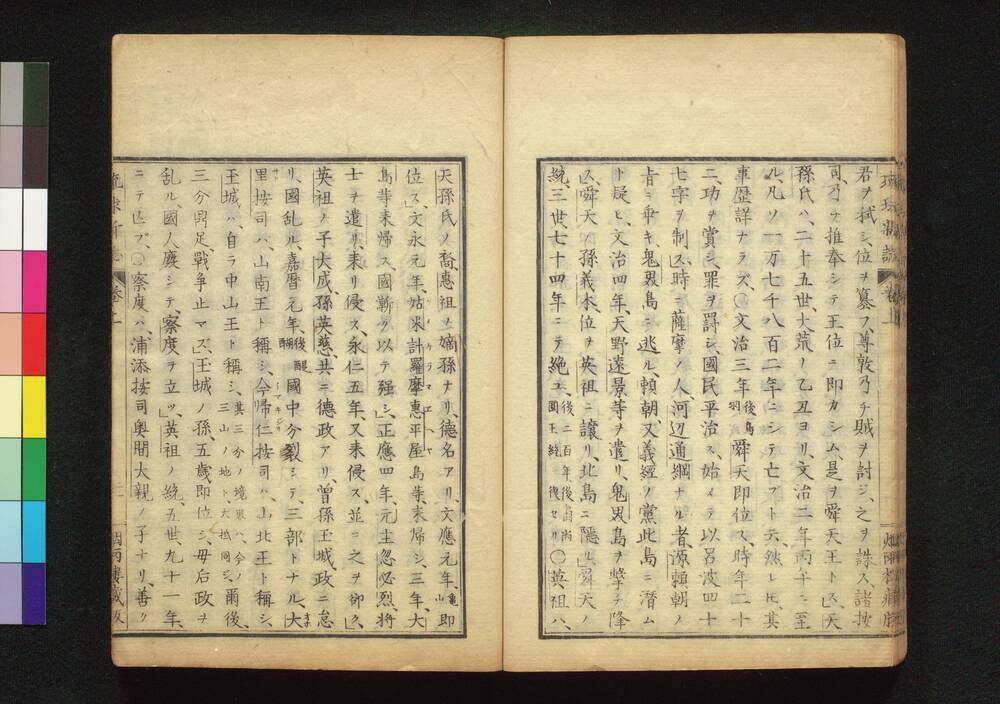 君ヲ弑シ、位ヲ簒フ、尊敦乃チ賊ヲ討シ、之ヲ誅ス、諸按
司、乃チ推奉シテ王位ニ即カシム、是ヲ舜天王トス、」天
孫氏ハ、二十五世、大荒ノ乙丑ヨリ、文治二年丙午ニ至
ル、凡ソ一万七千八百二年ニシテ亡ブト云、然レㇳモ、其
事歴詳ナラズ、〇文治三年、後鳥羽舜天即位ス、時年二十
二、功ヲ賞シ、罪ヲ罸シ、國民平治ス、始メテ以呂波四十
七字ヲ制ス、」時ニ薩摩ノ人、河辺通綱ナル者、源頼朝ノ
旨ニ乖キ、鬼界島ニ逃ル、頼朝又義經ノ黨、此島ニ潜ム
ト疑ヒ、文治四年、天野遠景等ヲ遣リ、鬼界島ヲ撃チ降
ス、」舜天ノ孫義本、位ヲ英祖ニ讓リ、北島ニ隠ル、」舜天ノ
統、三世七十四年ニテ絶ユ、後二百年後尚円王統復セリ〇英祖ハ、
天孫氏ノ裔、惠祖ノ嫡孫ナリ、德名アリ、文應元年、亀山即
位ス、」文永元年、姑米計羅摩惠平屋島等、来帰シ、三年、大
島等来帰ス、國漸ク以テ强シ、」正應四年、元主忽必烈、将
士ヲ遣リ、来リ侵ス、永仁五年、又来侵ス、並ニ之ヲ卻ク、」
英祖ノ子大成、孫英慈、共ニ德政アリ、曽孫玉城、政ニ怠
リ、國乱ル、嘉暦元年、後醍醐國中分裂シテ、三部トナル、大
里按司ハ、山南王ト稱シ、今帰仁按司ハ、山北王ト稱シ、
玉城ハ、自ラ中山王ト稱シ、其三分ノ境界ハ、今ノ三山ノ地ト大抵同シ、爾後、
三分鼎足、戰争止マズ、」玉城ノ孫、五歳即位シ、毋后政ヲ
乱ル、國人廃シテ、察度ヲ立ツ、」英祖ノ統、五世、九十一年、
ニテ亡ブ、〇察度ハ、浦添按司奧間大親ノ子ナリ、善ク